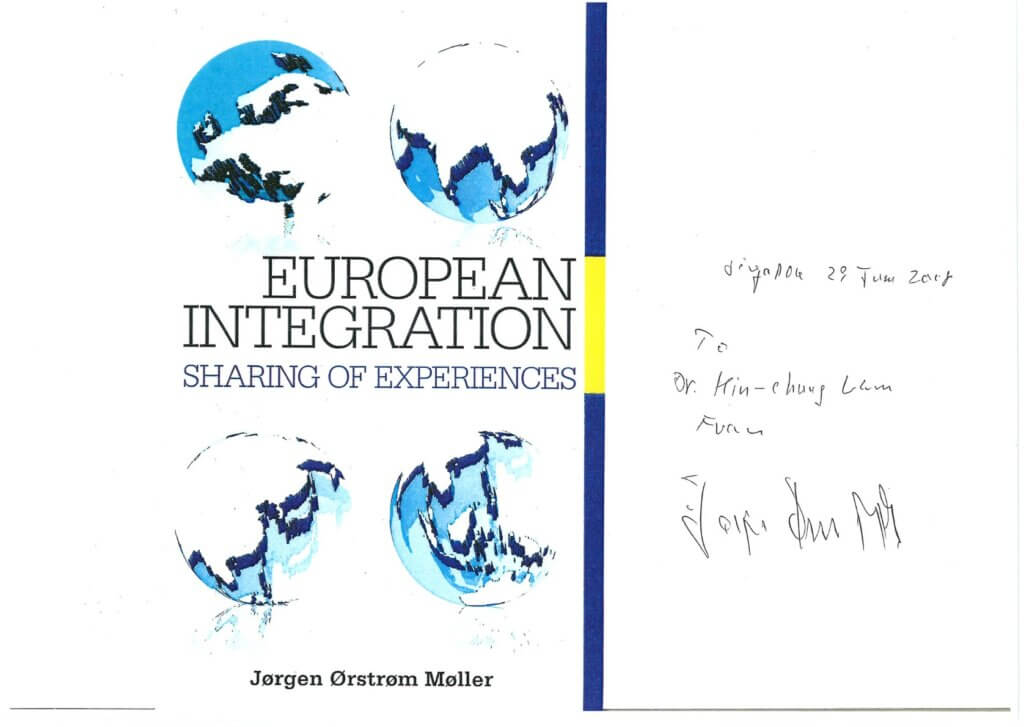 EUROPEAN
INTEGRATION
SHARING OF EXPERIENCES
Jørgen Ørstrøm Møller
29 June 2008
To
Dr. Hin-chung Lam
From